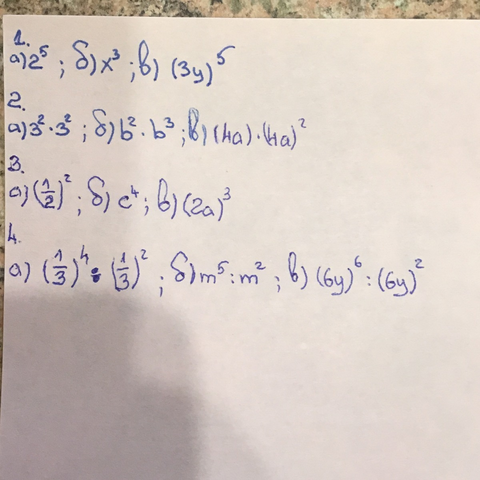 1.
а) 2⁵ ; б) x³ ; в) (3y)⁵
2.
а) 3² · 3² ; б) b² · b³ ; в) (4a) · (4a)²
3.
а) (1/2)² ; б) c⁴ ; в) (2a)³
4.
а) (1/3)⁴ : (1/3)² ; б) m⁵ : m² ; в) (6y)⁶ : (6y)²